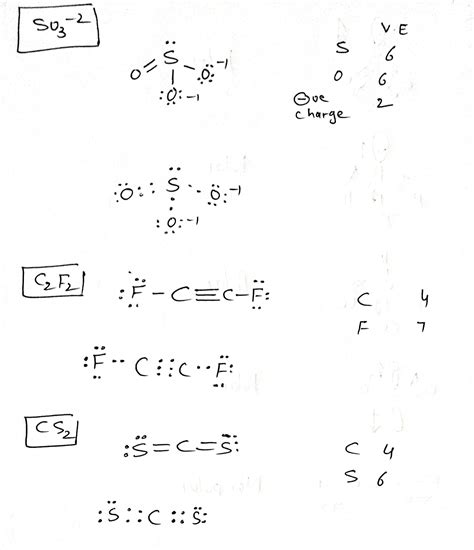 SO₃⁻² V.E
S 6
O=S-O⁻¹ O 6
O⁻¹ ⊖ve 2
charge
O::S··O⁻¹
O⁻¹
C₂F₂ :F-C≡C-F: C 4
F 7
:F··C:::C··F:
CS₂ :S=C=S: C 4
S 6
:S::C::S: